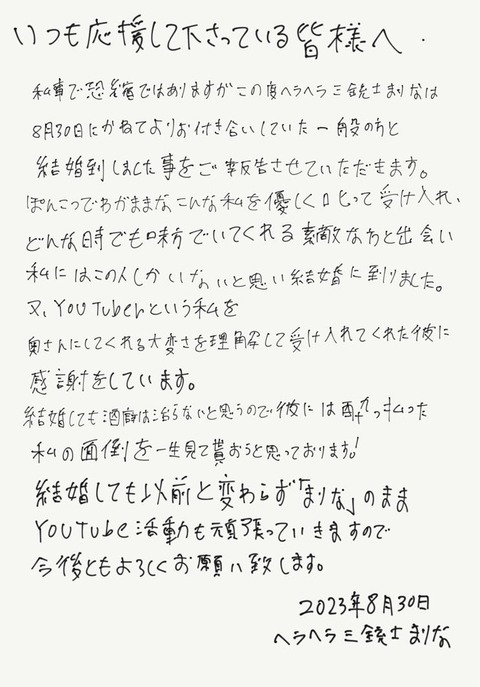 いつも応援して下さっている皆様へ.
私事で恐縮ではありますがこの度ヘラヘラ三銃士まりなは
8月30日にかねてよりお付き合いしていた一般の方と
結婚到しました事をご報告させていただきます。
ぽんこつでわがままなこんな私を優しく叱って受け入れ、
どんな時でも味方でいてくれる素敵な方と出会い
私にはこの人しかいないと思い結婚に到りました。
又、YouTuberという私を
奥さんにしてくれる大変さを理解して受け入れてくれた彼に
感謝をしています。
結婚しても酒癖は治らないと思うので彼には酔っ払った
私の面倒を一生見て貰おうと思っております!
結婚しても以前と変わらず「まりな」のまま
YouTube活動も頑張っていきますので
今後ともよろしくお願い致します。
2023年8月30日
ヘラヘラ三銃士まりな